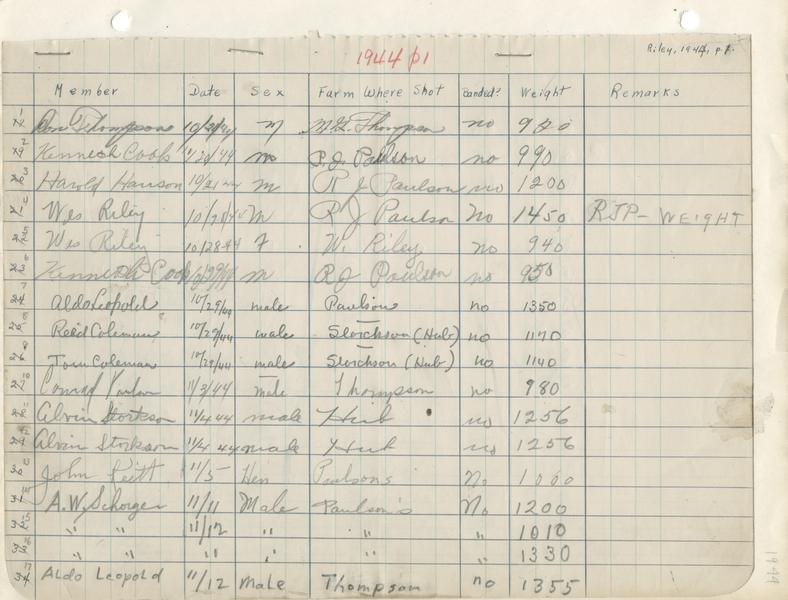 1944 p1
Riley, 1944, p1.
Member Date Sex Farm Where Shot Banded? Weight Remarks
Don Thompson M Thompson no
Kenneth Cook m R.J. Paulson no 990
Harold Hanson 10/21 44 M R J Paulson no 1200
Wes Riley M R J Paulson No 1450 RJP- WEIGHT
Wes Riley 10/28-44 F W. Riley no 940
Kenneth Cook m R J Paulson no 950
Aldo Leopold 10/29/44 male Paulson no 1350
Reed Coleman 10/29/44 male (Hub) no
Tom Coleman 10/29/44 male (Hub) no 1140
Conrad 11/3/44 male Thompson no 980
Alvin Storkson 11/4 44 male Hub no 1256
Alvin Storkson 11/4 44 male Hub no 1256
John 11/5 Hen Paulsons No 1000
A.W. Schorger 11/11 Male Paulson's No 1200
" " 11/12 " " " 1010
" " " " " " 1330
Aldo Leopold 11/12 Male Thompson no 1355
1944